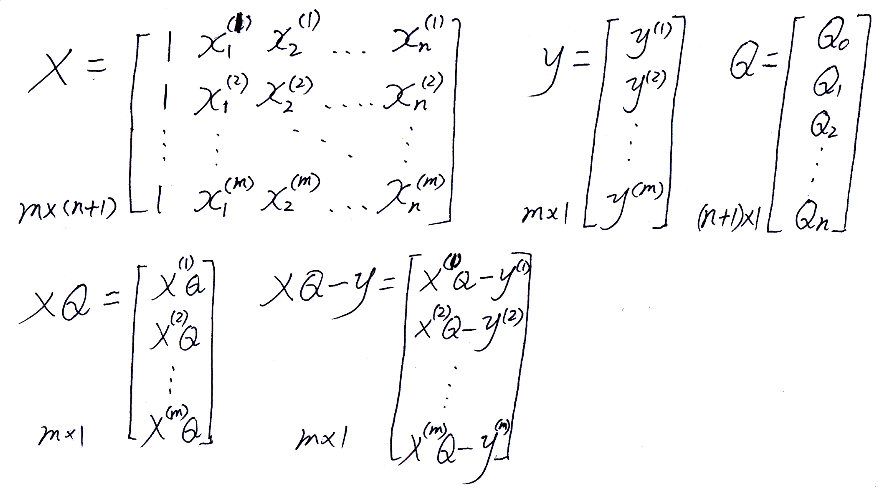 X = [ 1 x₁⁽¹⁾ x₂⁽¹⁾ ... xₙ⁽¹⁾
1 x₁⁽²⁾ x₂⁽²⁾ .... xₙ⁽²⁾
⋮ ⋮ ⋱ ⋮
1 x₁⁽ᵐ⁾ x₂⁽ᵐ⁾ ... xₙ⁽ᵐ⁾ ]
m×(n+1)
y = [ y⁽¹⁾
y⁽²⁾
⋮
y⁽ᵐ⁾ ]
m×1
Q = [ Q₀
Q₁
Q₂
⋮
Qₙ ]
(n+1)×1
XQ = [ X⁽¹⁾Q
X⁽²⁾Q
⋮
X⁽ᵐ⁾Q ]
m×1
XQ-y = [ X⁽¹⁾Q-y⁽¹⁾
X⁽²⁾Q-y⁽²⁾
⋮
X⁽ᵐ⁾Q-y⁽ᵐ⁾ ]
m×1